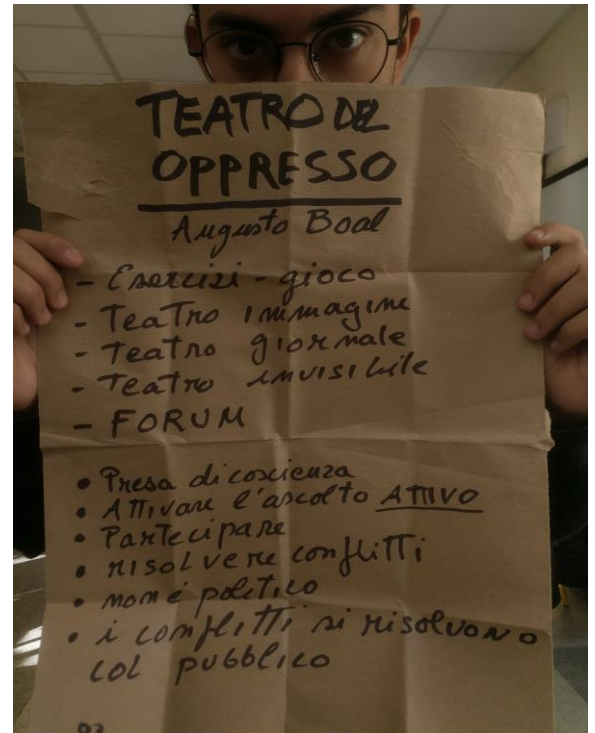 TEATRO DEL
OPPRESSO
Augusto Boal
- Esercizi - gioco
- Teatro immagine
- Teatro giornale
- Teatro invisibile
- FORUM
• Presa di coscienza
• Attivare l'ascolto ATTIVO
• Partecipare
• risolvere conflitti
• non è politico
• i conflitti si risolvono
col pubblico